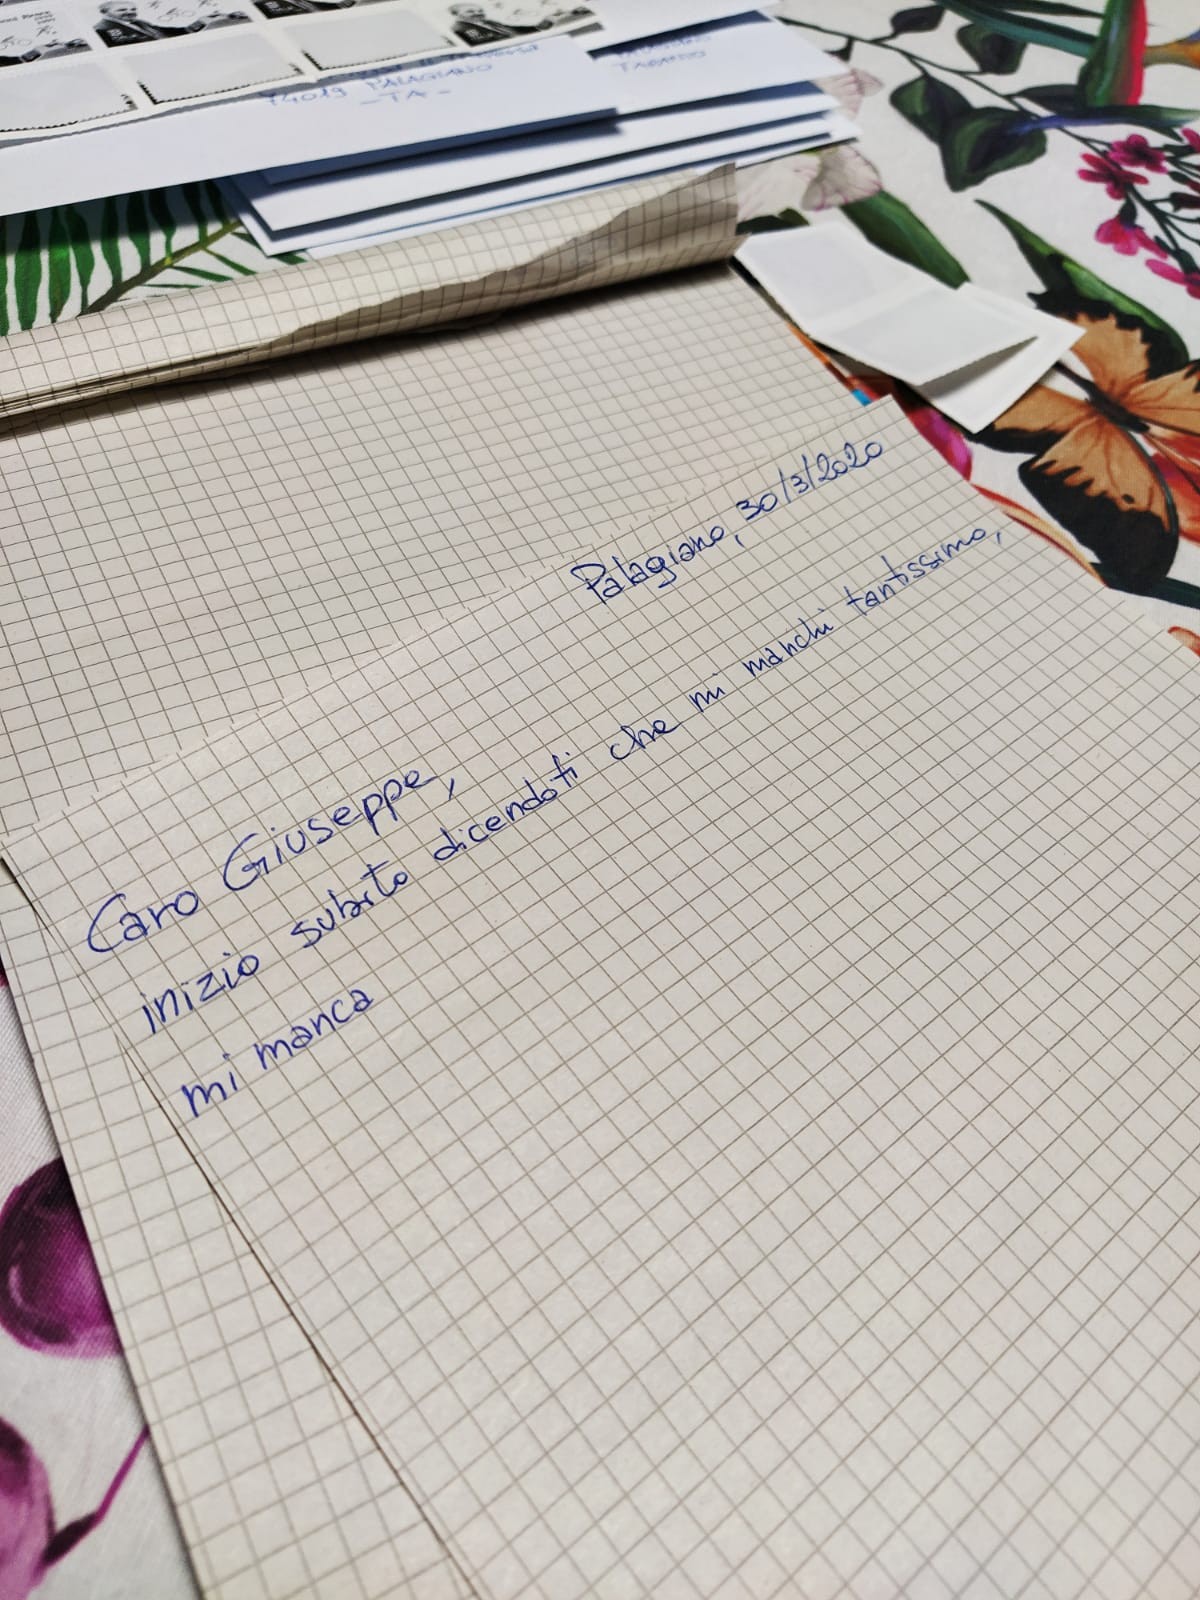 74019 PALAGIANO
- TA -
TARANTO
Palagiano, 30/3/2020
Caro Giuseppe,
inizio subito dicendoti che mi manchi tantissimo,
mi manca